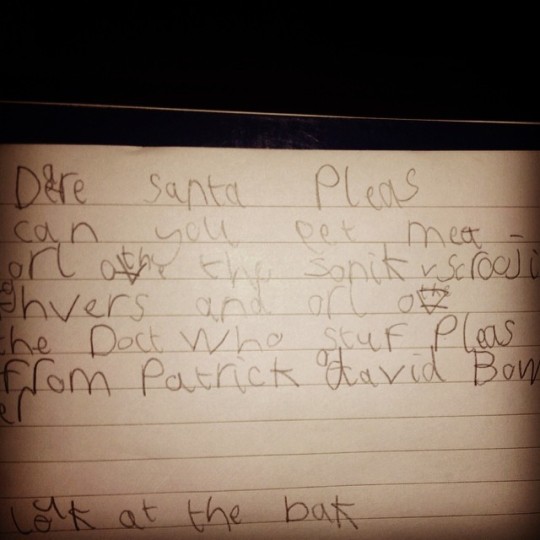 Dere Santa Pleas
can you get mea -
orl ov the sonik scrooi
dhvers and orl ov
the Doct Who stuf Pleas
from Patrick david Bow
er
look at the bak